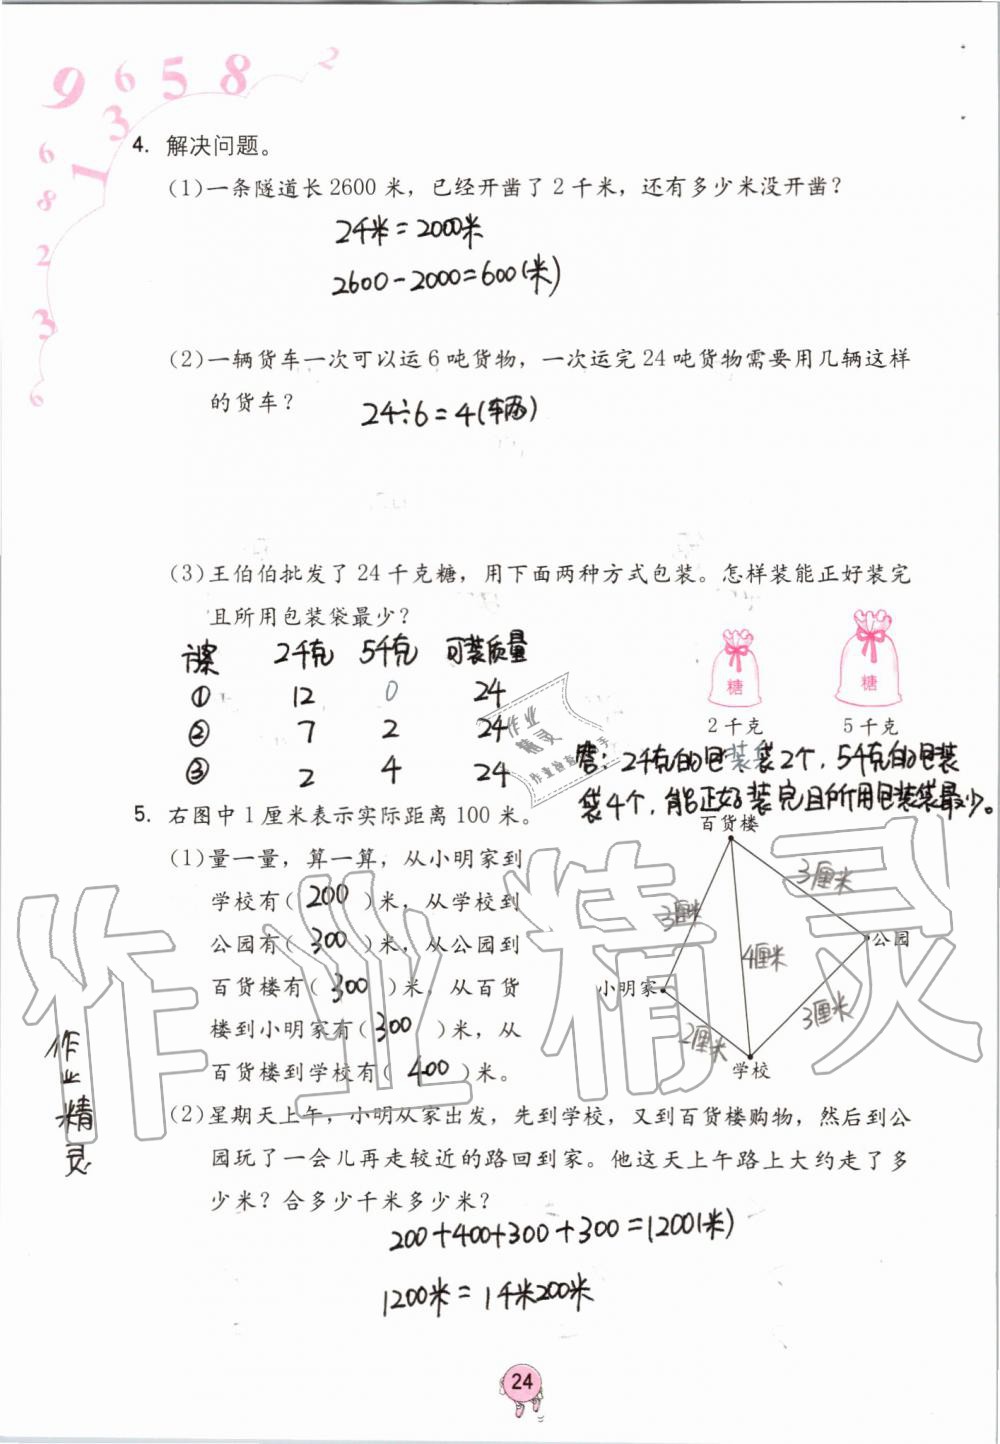 9 6 5 8 2
3
1
6
8
2
3
6
4. 解决问题。
(1)一条隧道长2600米，已经开凿了2千米，还有多少米没开凿？
2千米=2000米
2600-2000=600(米)
(2)一辆货车一次可以运6吨货物，一次运完24吨货物需要用几辆这样
的货车？
24÷6=4(辆)
(3)王伯伯批发了24千克糖，用下面两种方式包装。怎样装能正好装完
且所用包装袋最少？
方案 2千克 5千克 可装质量
① 12 0 24
② 7 2 24
③ 2 4 24
糖 糖
2千克 5千克
答：2千克的包装袋2个，5千克的包装
袋4个，能正好装完且所用包装袋最少。
5. 右图中1厘米表示实际距离100米。
(1)量一量，算一算，从小明家到
学校有( 200 )米，从学校到
公园有( 300 )米，从公园到
百货楼有( 300 )米，从百货
楼到小明家有( 300 )米，从
百货楼到学校有( 400 )米。
百货楼
3厘米
3厘米
公园
4厘米
小明家
3厘米
2厘米
学校
(2)星期天上午，小明从家出发，先到学校，又到百货楼购物，然后到公
园玩了一会儿再走较近的路回到家。他这天上午路上大约走了多
少米？合多少千米多少米？
200+400+300+300=1200(米)
1200米=1千米200米
作业精灵
作业精灵
作业
精灵
24